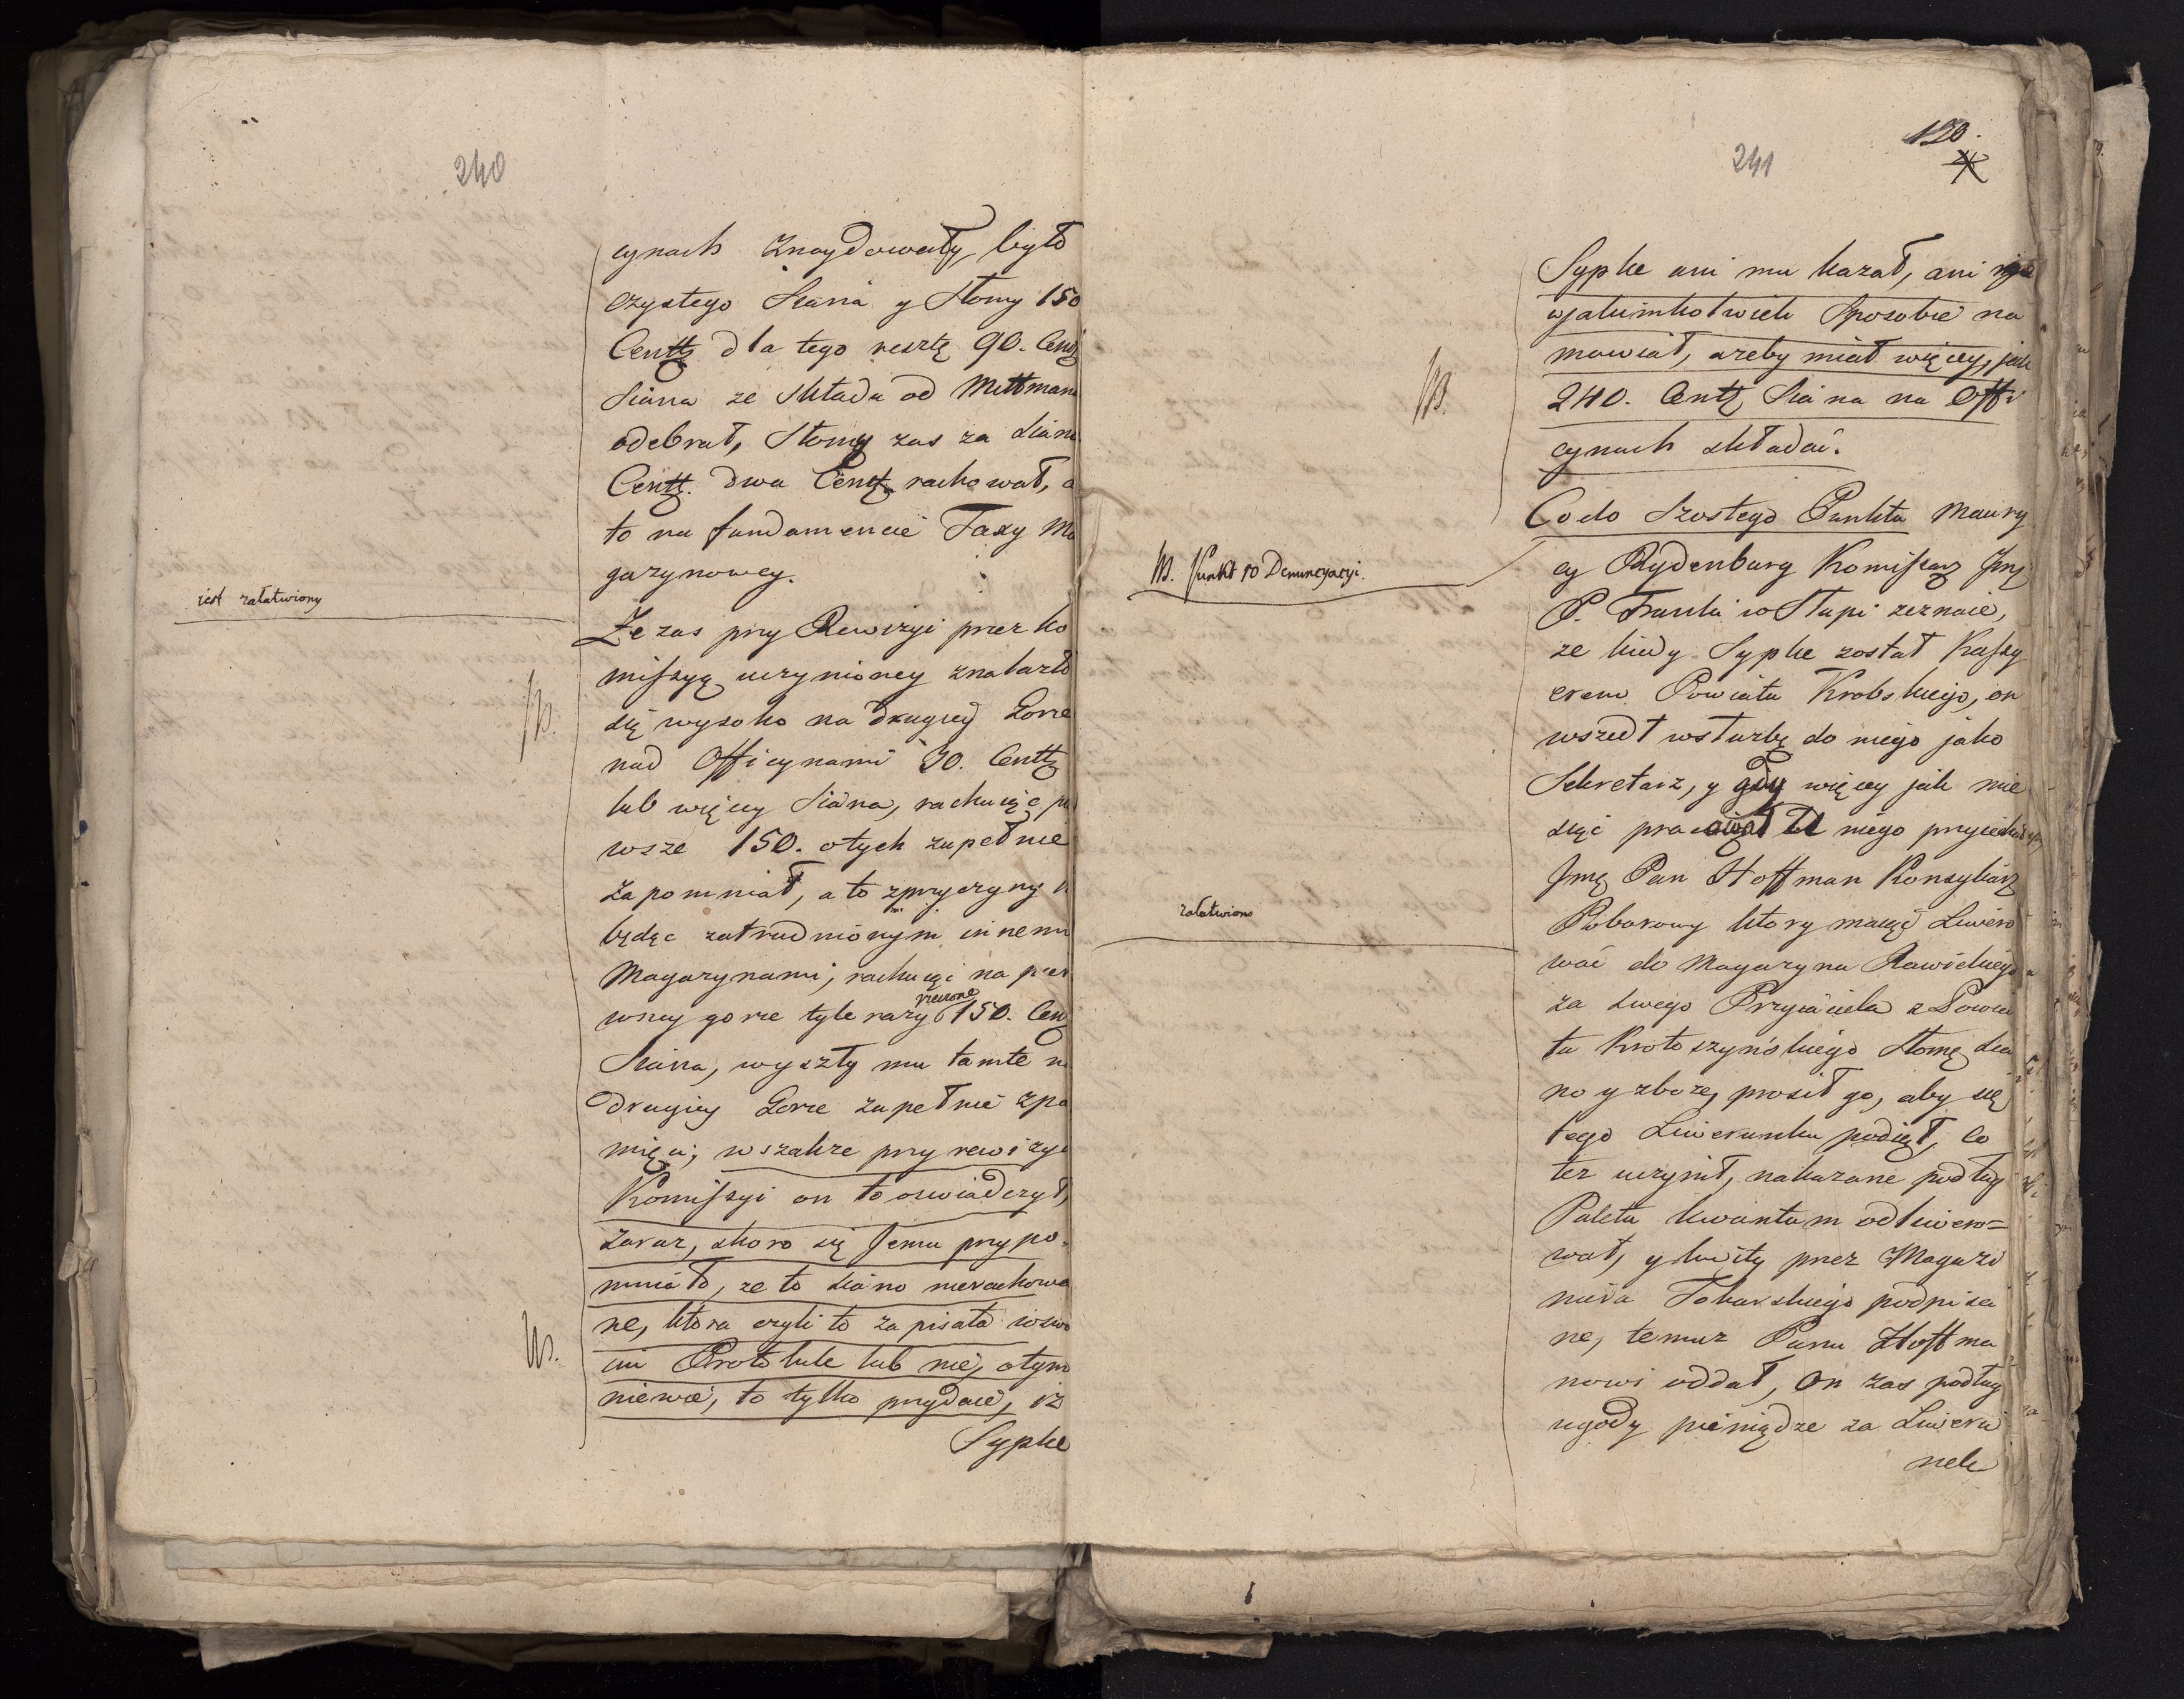 240
cynach znaydowały, było
czystego Siana y Słomy 150
Centt dla tego resztę 90. Cent
Siana ze składu od Mittmana
odebrał, Słomy zas za siano
Centt. dwa Centt. rachował, a
to na fundamencie Taxy Ma
gazynowey.
jest załatwiony
Że zas przy Rewizyi przez ko
missyą uczynioney znalazło
się wysoko na drugiey Gorze
NB.
nad Officynami 30. Centt
lub więcy Siana, rachuiąc pu
wsze 150. otych zupełnie
zapomniał, a to zprzyczyny
będąc zatrudnionym innemi
Magazynami, rachuiąc na pier
wszey gorze tyle razy rzeczone 150. Cent
Siana, wyszły mu tamte n
drugiey Gorze zupełnie zpa
mięci; wszakze przy rewizyi
Komissyi on to oswiadczył,
zaraz, skoro się Jemu przypo-
mniało, ze to siano nierachowa
ne, ktora czyli to zapisała wswo
NB.
im Protokule lub nie, otym
niewie, to tylko przydaie, iz
Sypke
241
120.
Sypke ani mu kazał, ani
wjakimkolwiek Sposobie na
mawiał, azeby miał więcey, jak
NB.
240. Centt Siana na Offi
cynach składać.
Codo Szostego Punktu Maury
NB. Punkt 10 Denuncyacyi.
cy Rydenburg Komissarz Jmę
P. Franki w Słupi zeznaie,
ze kiedy Sypke został Kassy
erem Powiatu Krobskiego, on
wszedł wsłuzbę do niego jako
Sekretarz, y gdy więcy jak mie
siąc pracował do niego przyiechał
Jmę Pan Hoffman Konsyliarz
załatwiono
Poborowy ktory maiąc Liwero
wać do Magazynu Rawickiego
za swego Przyiaciela z Powia
tu Krotoszyńskiego Słomę sia
no y zboze, prosił go, aby się
tego Liwerunku podiął, co
tez uczynił, nakazane podług
Paletu kwantum odliwero=
wał, y kwity przez Magazi
niera Tokarskiego podpisa
ne, temuz Panu Hoffma
nowi oddał, On zas podług
ugody pieniądze za Liweru
nek